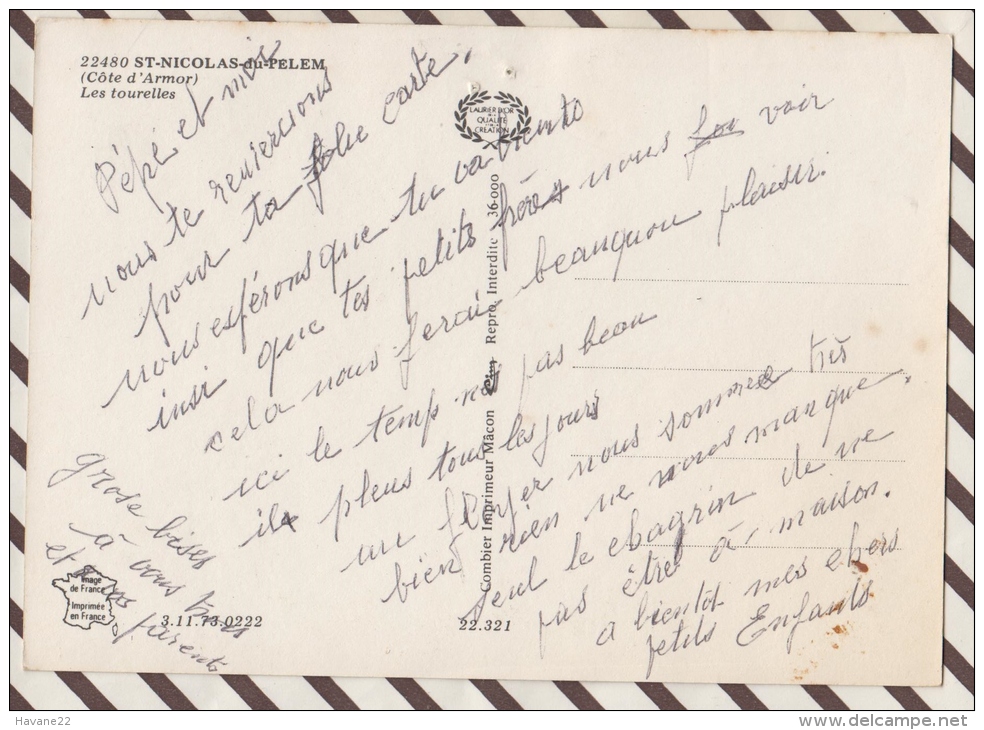 22480 ST-NICOLAS-du-PELEM
(Côte d'Armor)
Les tourelles
LAURIER D'OR
DE LA
QUALITÉ
CRÉATION
Pépé et moi
nous te remercions
pour ta jolie carte.
nous espérons que tu va viento
insi que tes petits frères nous voir
cela nous ferai beauquou plaisir.
ici le temp né pas beau
il pleus tous les jours
un foyer nous sommes très
bien rien ne nous manque,
seul le chagrin de ne
pas être à maison.
a bientôt mes chers
petits Enfants
grose bises
à vous tous
et a vos
parents
Image
de France
Imprimée
en France
3.11.73.0222
22.321
Combier Imprimeur Mâcon Cim Repro. Interdite 36-000
Havane22
www.delcampe.net